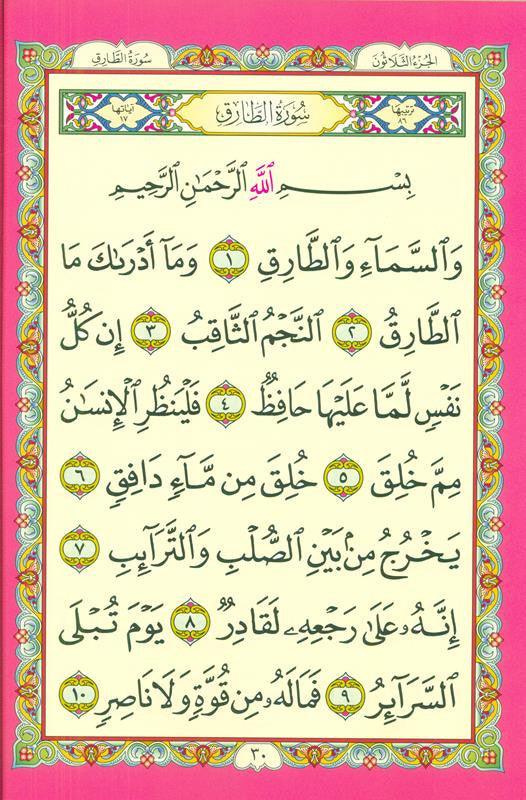 الجزء الثلاثون
سورة الطارق
ترتيبها
٨٦
سُورَةُ الطَّارِقِ
آياتها
١٧
بِسْمِ ٱللَّهِ ٱلرَّحْمَٰنِ ٱلرَّحِيمِ
وَٱلسَّمَآءِ وَٱلطَّارِقِ ١ وَمَآ أَدْرَىٰكَ مَا
ٱلطَّارِقُ ٢ ٱلنَّجْمُ ٱلثَّاقِبُ ٣ إِن كُلُّ
نَفْسٍ لَّمَّا عَلَيْهَا حَافِظٌ ٤ فَلْيَنظُرِ ٱلْإِنسَٰنُ
مِمَّ خُلِقَ ٥ خُلِقَ مِن مَّآءٍ دَافِقٍ ٦
يَخْرُجُ مِنۢ بَيْنِ ٱلصُّلْبِ وَٱلتَّرَآئِبِ ٧
إِنَّهُۥ عَلَىٰ رَجْعِهِۦ لَقَادِرٌ ٨ يَوْمَ تُبْلَى
ٱلسَّرَآئِرُ ٩ فَمَا لَهُۥ مِن قُوَّةٍ وَلَا نَاصِرٍ ١٠
٣٠